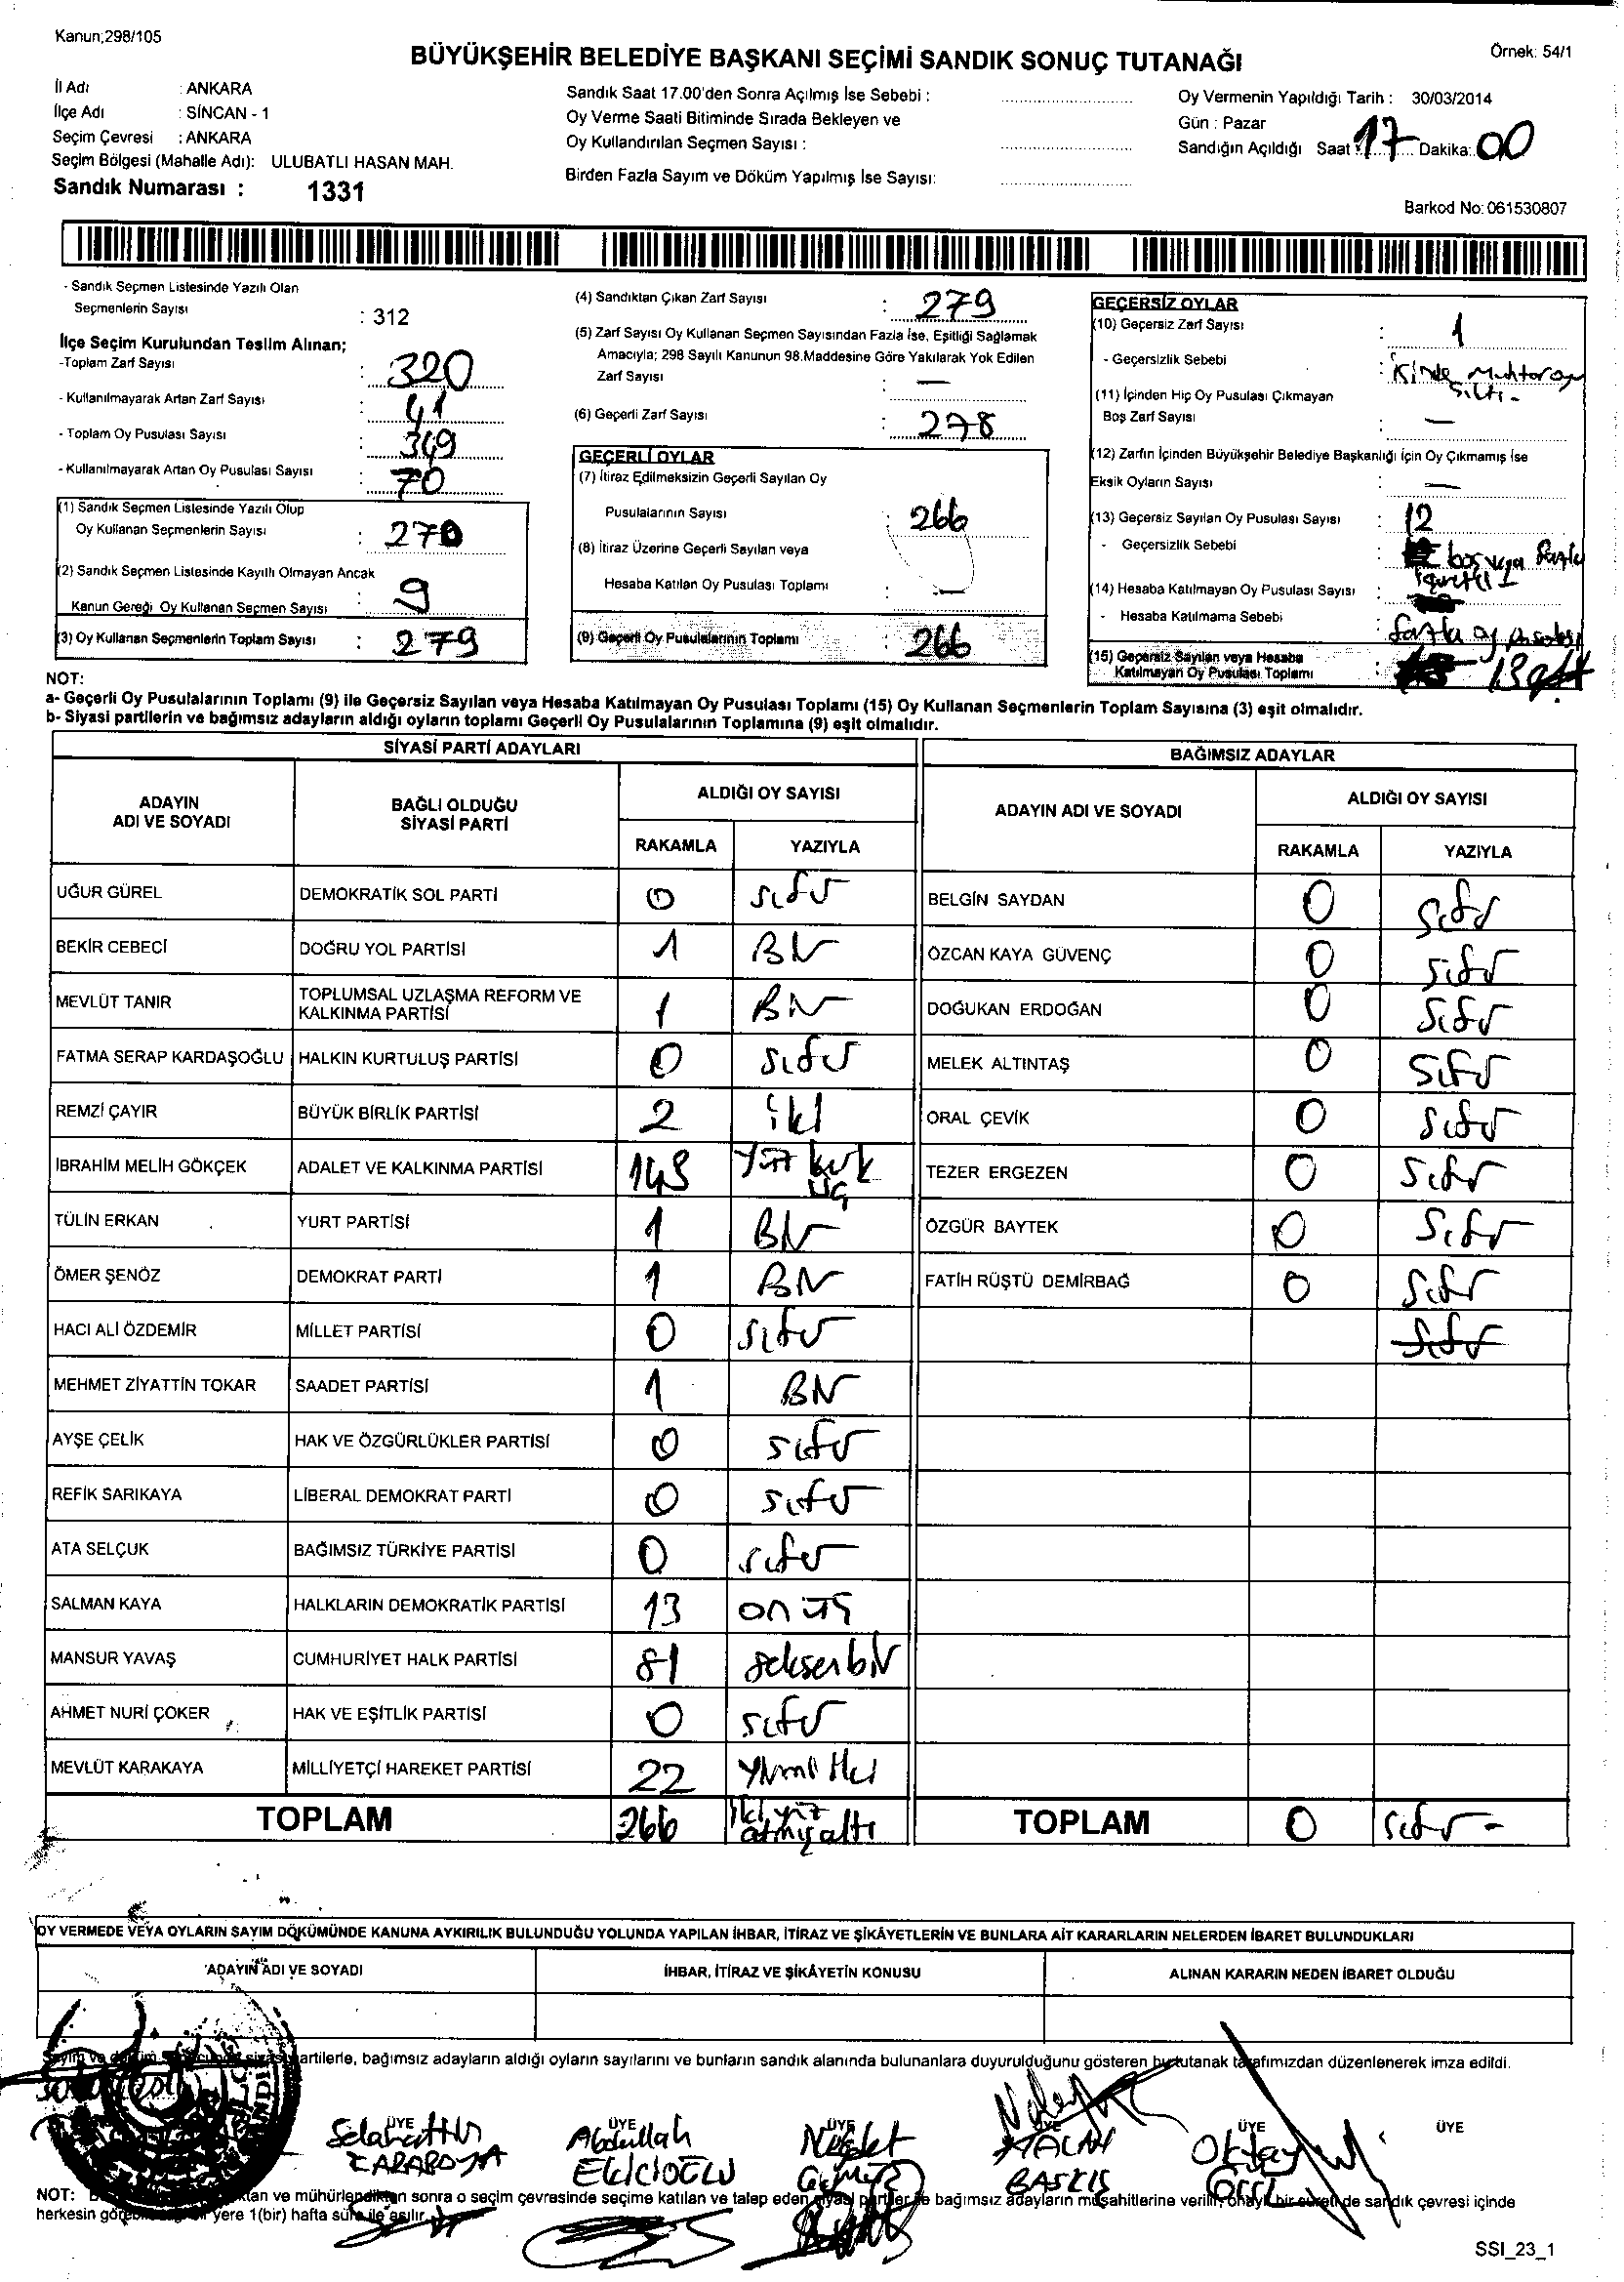 Kanun;298/105
Örnek: 54/1
BÜYÜKŞEHİR BELEDİYE BAŞKANI SEÇİMİ SANDIK SONUÇ TUTANAĞI
İl Adı : ANKARA
İlçe Adı : SİNCAN - 1
Seçim Çevresi : ANKARA
Seçim Bölgesi (Mahalle Adı): ULUBATLI HASAN MAH.
Sandık Numarası : 1331
Sandık Saat 17.00'den Sonra Açılmış İse Sebebi :
Oy Verme Saati Bitiminde Sırada Bekleyen ve
Oy Kullandırılan Seçmen Sayısı :
Birden Fazla Sayım ve Döküm Yapılmış İse Sayısı:
Oy Vermenin Yapıldığı Tarih : 30/03/2014
Gün : Pazar
Sandığın Açıldığı Saat : 17 Dakika: 00
Barkod No: 061530807
- Sandık Seçmen Listesinde Yazılı Olan
Seçmenlerin Sayısı : 312
İlçe Seçim Kurulundan Teslim Alınan;
-Toplam Zarf Sayısı : 320
- Kullanılmayarak Artan Zarf Sayısı : 41
- Toplam Oy Pusulası Sayısı : 349
- Kullanılmayarak Artan Oy Pusulası Sayısı : 70
(1) Sandık Seçmen Listesinde Yazılı Olup
Oy Kullanan Seçmenlerin Sayısı : 270
(2) Sandık Seçmen Listesinde Kayıtlı Olmayan Ancak
Kanun Gereği Oy Kullanan Seçmen Sayısı : 9
(3) Oy Kullanan Seçmenlerin Toplam Sayısı : 279
(4) Sandıktan Çıkan Zarf Sayısı : 279
(5) Zarf Sayısı Oy Kullanan Seçmen Sayısından Fazla İse, Eşitliği Sağlamak
Amacıyla; 298 Sayılı Kanunun 98.Maddesine Göre Yakılarak Yok Edilen
Zarf Sayısı : —
(6) Geçerli Zarf Sayısı : 278
GEÇERLİ OYLAR
(7) İtiraz Edilmeksizin Geçerli Sayılan Oy
Pusulalarının Sayısı : 266
(8) İtiraz Üzerine Geçerli Sayılan veya
Hesaba Katılan Oy Pusulası Toplamı : —
(9) Geçerli Oy Pusulalarının Toplamı : 266
GEÇERSİZ OYLAR
(10) Geçersiz Zarf Sayısı : 1
- Geçersizlik Sebebi :
(11) İçinden Hiç Oy Pusulası Çıkmayan
Boş Zarf Sayısı : —
(12) Zarfın İçinden Büyükşehir Belediye Başkanlığı İçin Oy Çıkmamış İse
Eksik Oyların Sayısı : —
(13) Geçersiz Sayılan Oy Pusulası Sayısı : 12
- Geçersizlik Sebebi : boş veya fazla
(14) Hesaba Katılmayan Oy Pusulası Sayısı :
- Hesaba Katılmama Sebebi : fazla oy
(15) Geçersiz Sayılan veya Hesaba
Katılmayan Oy Pusulası Toplamı : 13
NOT:
a- Geçerli Oy Pusulalarının Toplamı (9) ile Geçersiz Sayılan veya Hesaba Katılmayan Oy Pusulası Toplamı (15) Oy Kullanan Seçmenlerin Toplam Sayısına (3) eşit olmalıdır.
b- Siyasi partilerin ve bağımsız adayların aldığı oyların toplamı Geçerli Oy Pusulalarının Toplamına (9) eşit olmalıdır.
SİYASİ PARTİ ADAYLARI
ADAYIN ADI VE SOYADI BAĞLI OLDUĞU SİYASİ PARTİ ALDIĞI OY SAYISI
RAKAMLA YAZIYLA
UĞUR GÜREL DEMOKRATİK SOL PARTİ 0 sıfır
BEKİR CEBECİ DOĞRU YOL PARTİSİ 1 Bir
MEVLÜT TANIR TOPLUMSAL UZLAŞMA REFORM VE KALKINMA PARTİSİ 1 Bir
FATMA SERAP KARDAŞOĞLU HALKIN KURTULUŞ PARTİSİ 0 sıfır
REMZİ ÇAYIR BÜYÜK BİRLİK PARTİSİ 2 iki
İBRAHİM MELİH GÖKÇEK ADALET VE KALKINMA PARTİSİ 143 Yüz kırk üç
TÜLİN ERKAN YURT PARTİSİ 1 Bir
ÖMER ŞENÖZ DEMOKRAT PARTİ 1 Bir
HACI ALİ ÖZDEMİR MİLLET PARTİSİ 0 sıfır
MEHMET ZİYATTİN TOKAR SAADET PARTİSİ 1 Bir
AYŞE ÇELİK HAK VE ÖZGÜRLÜKLER PARTİSİ 0 sıfır
REFİK SARIKAYA LİBERAL DEMOKRAT PARTİ 0 sıfır
ATA SELÇUK BAĞIMSIZ TÜRKİYE PARTİSİ 0 sıfır
SALMAN KAYA HALKLARIN DEMOKRATİK PARTİSİ 13 on üç
MANSUR YAVAŞ CUMHURİYET HALK PARTİSİ 81 seksenbir
AHMET NURİ ÇOKER HAK VE EŞİTLİK PARTİSİ 0 sıfır
MEVLÜT KARAKAYA MİLLİYETÇİ HAREKET PARTİSİ 22 Yirmi iki
TOPLAM 266 ikiyüz atmışaltı
BAĞIMSIZ ADAYLAR
ADAYIN ADI VE SOYADI ALDIĞI OY SAYISI
RAKAMLA YAZIYLA
BELGİN SAYDAN 0 sıfır
ÖZCAN KAYA GÜVENÇ 0 sıfır
DOĞUKAN ERDOĞAN 0 sıfır
MELEK ALTINTAŞ 0 sıfır
ORAL ÇEVİK 0 sıfır
TEZER ERGEZEN 0 sıfır
ÖZGÜR BAYTEK 0 sıfır
FATİH RÜŞTÜ DEMİRBAĞ 0 sıfır
sıfır
TOPLAM 0 sıfır -
OY VERMEDE VEYA OYLARIN SAYIM DÖKÜMÜNDE KANUNA AYKIRILIK BULUNDUĞU YOLUNDA YAPILAN İHBAR, İTİRAZ VE ŞİKÂYETLERİN VE BUNLARA AİT KARARLARIN NELERDEN İBARET BULUNDUKLARI
ADAYIN ADI VE SOYADI İHBAR, İTİRAZ VE ŞİKÂYETİN KONUSU ALINAN KARARIN NEDEN İBARET OLDUĞU
partilerle, bağımsız adayların aldığı oyların sayılarını ve bunların sandık alanında bulunanlara duyurulduğunu gösteren bu tutanak tarafımızdan düzenlenerek imza edildi.
ÜYE ÜYE ÜYE ÜYE ÜYE ÜYE
Selahattin Abdullah Necdet Oktay
EKİCİOĞLU BASKIŞ
NOT: ve mühürlendikten sonra o seçim çevresinde seçime katılan ve talep eden siyasi partiler ile bağımsız adayların müşahitlerine verilir, onaylı bir sureti de sandık çevresi içinde
herkesin yere 1(bir) hafta süre ile asılır.
SSI_23_1